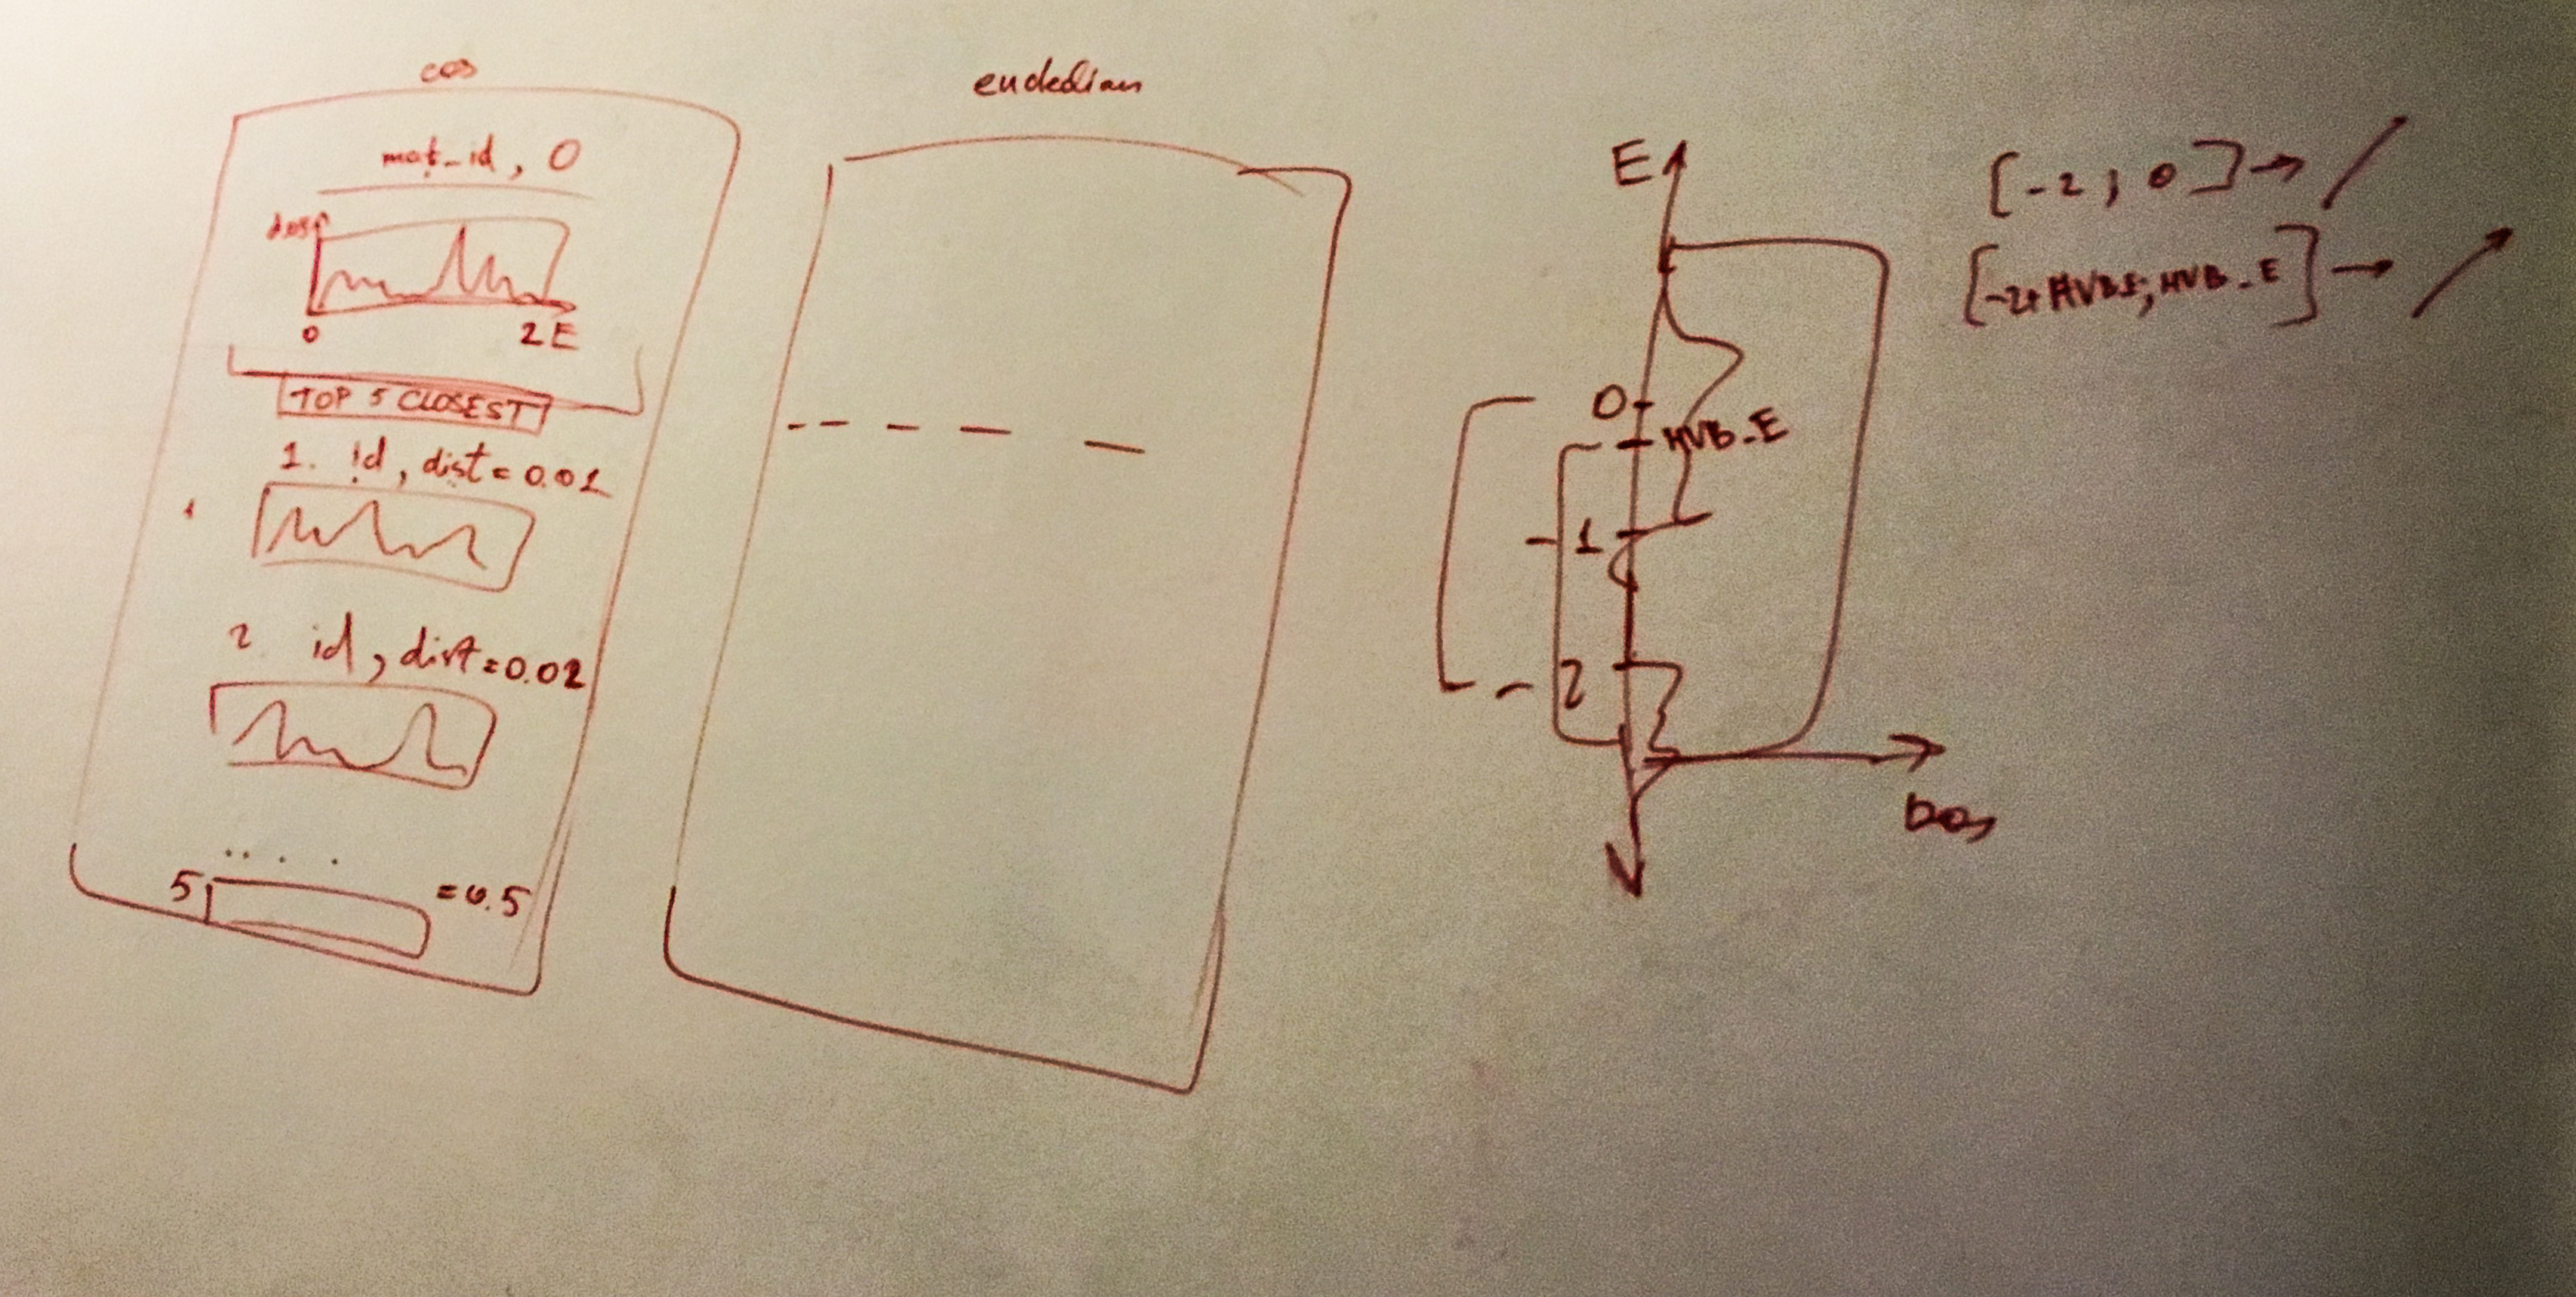 cos
mat_id, 0
dos
0 2 E
TOP 5 CLOSEST
1. id, dist = 0.01
2 id, dist = 0.02
5 = 0.5
euclidian
E
0
HVB_E
- 1
- 2
Dos
[-2 ; 0] →
[-2+HVB_E; HVB_E] →